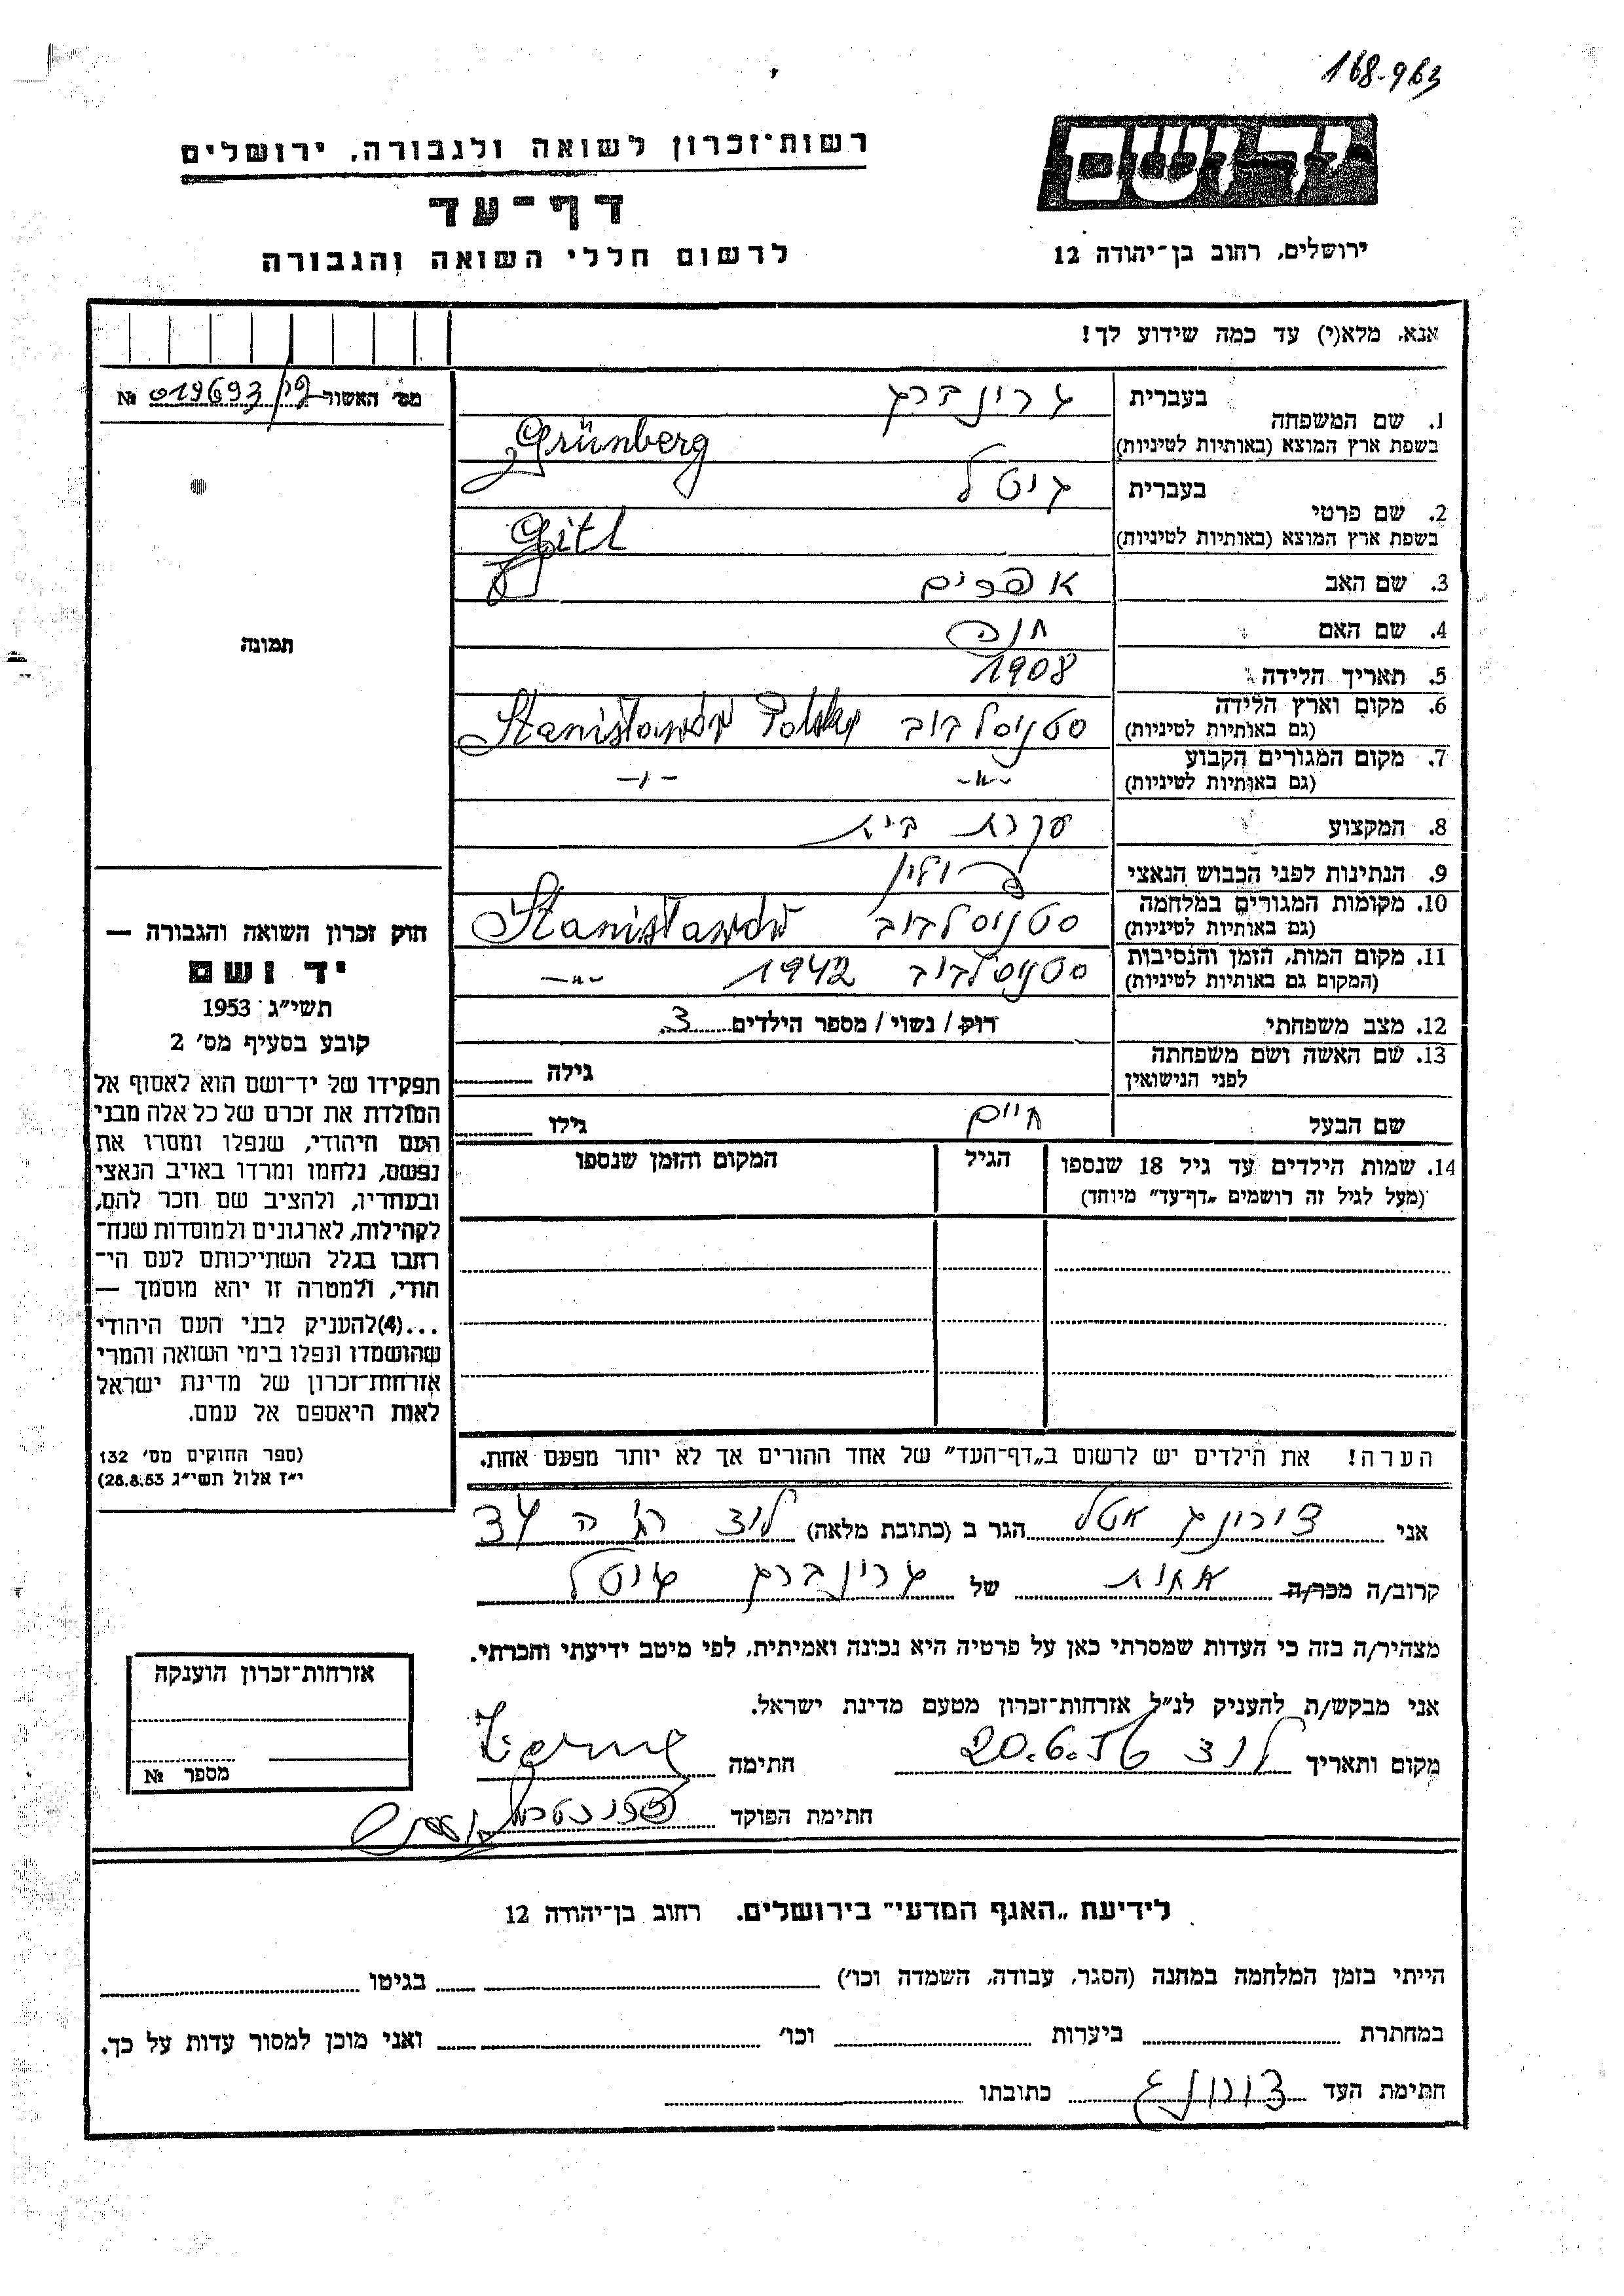 168-963
יד ושם
ירושלים, רחוב בן־יהודה 12
רשות־זכרון לשואה ולגבורה, ירושלים
דף־עד
לרשום חללי השואה והגבורה
אנא, מלא(י) עד כמה שידוע לך!
מס' האשור 019693 №
1. שם המשפחה
בעברית גרינברג
בשפת ארץ המוצא (באותיות לטיניות) Grünberg
2. שם פרטי
בעברית גיטל
בשפת ארץ המוצא (באותיות לטיניות) Gitl
3. שם האב אפרים
4. שם האם חנה
5. תאריך הלידה 1908
6. מקום וארץ הלידה סטניסלבוב Stanisławów Polska
(גם באותיות לטיניות)
7. מקום המגורים הקבוע -"- -"-
(גם באותיות לטיניות)
8. המקצוע עקרת בית
9. הנתינות לפני הכבוש הנאצי פולין
10. מקומות המגורים במלחמה סטניסלבוב Stanisławów
(גם באותיות לטיניות)
11. מקום המות, הזמן והנסיבות סטניסלבוב 1942 -"-
(המקום גם באותיות לטיניות)
12. מצב משפחתי רוק/ נשוי/ מספר הילדים 3
13. שם האשה ושם משפחתה
לפני הנישואין גילה
שם הבעל חיים גילו
14. שמות הילדים עד גיל 18 שנספו
(מעל לגיל זה רושמים „דף־עד" מיוחד)
הגיל
המקום והזמן שנספו
הערה! את הילדים יש לרשום ב„דף־העד" של אחד ההורים אך לא יותר מפעם אחת.
תמונה
חוק זכרון השואה והגבורה —
יד ושם
תשי"ג 1953
קובע בסעיף מס' 2
תפקידו של יד־ושם הוא לאסוף אל
המולדת את זכרם של כל אלה מבני
העם היהודי, שנפלו ומסרו את
נפשם, נלחמו ומרדו באויב הנאצי
ובעוזריו, ולהציב שם וזכר להם,
לקהילות, לארגונים ולמוסדות שנח־
רבו בגלל השתייכותם לעם הי־
הודי, ולמטרה זו יהא מוסמך —
...(4)להעניק לבני העם היהודי
שהושמדו ונפלו בימי השואה והמרי
אזרחות־זכרון של מדינת ישראל
לאות היאספם אל עמם.
(ספר החוקים מס' 132
י"ז אלול תשי"ג 28.8.53)
אני צורונג אטל הגר ב (כתובת מלאה) לוד 34
קרוב/ה מכר/ה אחות של גרינברג גיטל
מצהיר/ה בזה כי העדות שמסרתי כאן על פרטיה היא נכונה ואמיתית, לפי מיטב ידיעתי והכרתי.
אני מבקש/ת להעניק לנ"ל אזרחות־זכרון מטעם מדינת ישראל.
מקום ותאריך לוד 20.6.56 חתימה
חתימת הפוקד
אזרחות־זכרון הוענקה
מספר №
לידיעת „האגף המדעי" בירושלים, רחוב בן־יהודה 12
הייתי בזמן המלחמה במחנה (הסגר, עבודה, השמדה וכו') בגיטו
במחתרת ביערות וכו' ואני מוכן למסור עדות על כך.
חתימת העד צורונג כתובתו